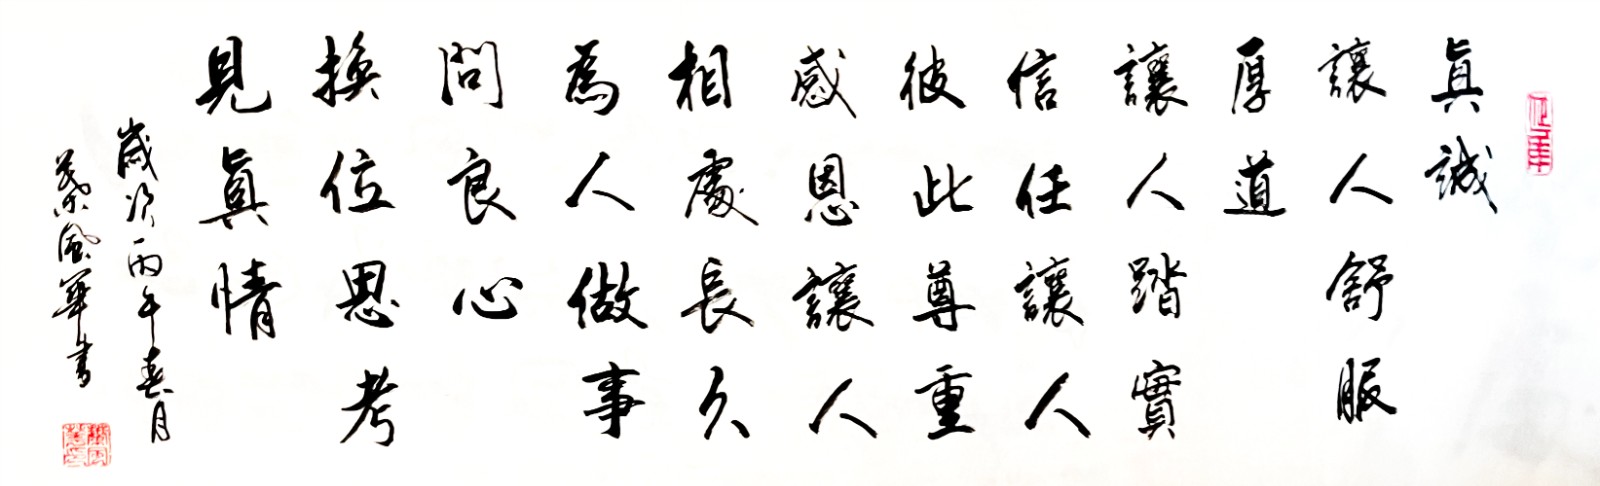 眞誠
讓人舒服
厚道
讓人踏實
信任讓人
彼此尊重
感恩讓人
相處長久
為人做事
問良心
換位思考
見眞情
歲次丙午春月
葉風華書